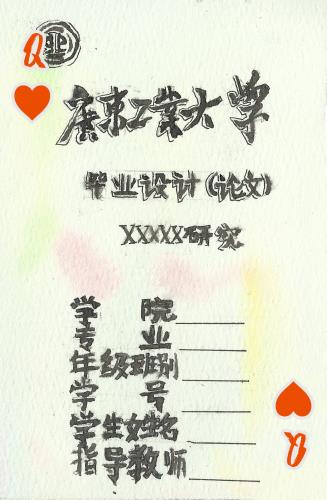 Q
广东工业大学
毕业设计(论文)
XXXXX研究
学院
专业
年级班别
学号
学生姓名
指导教师
Q